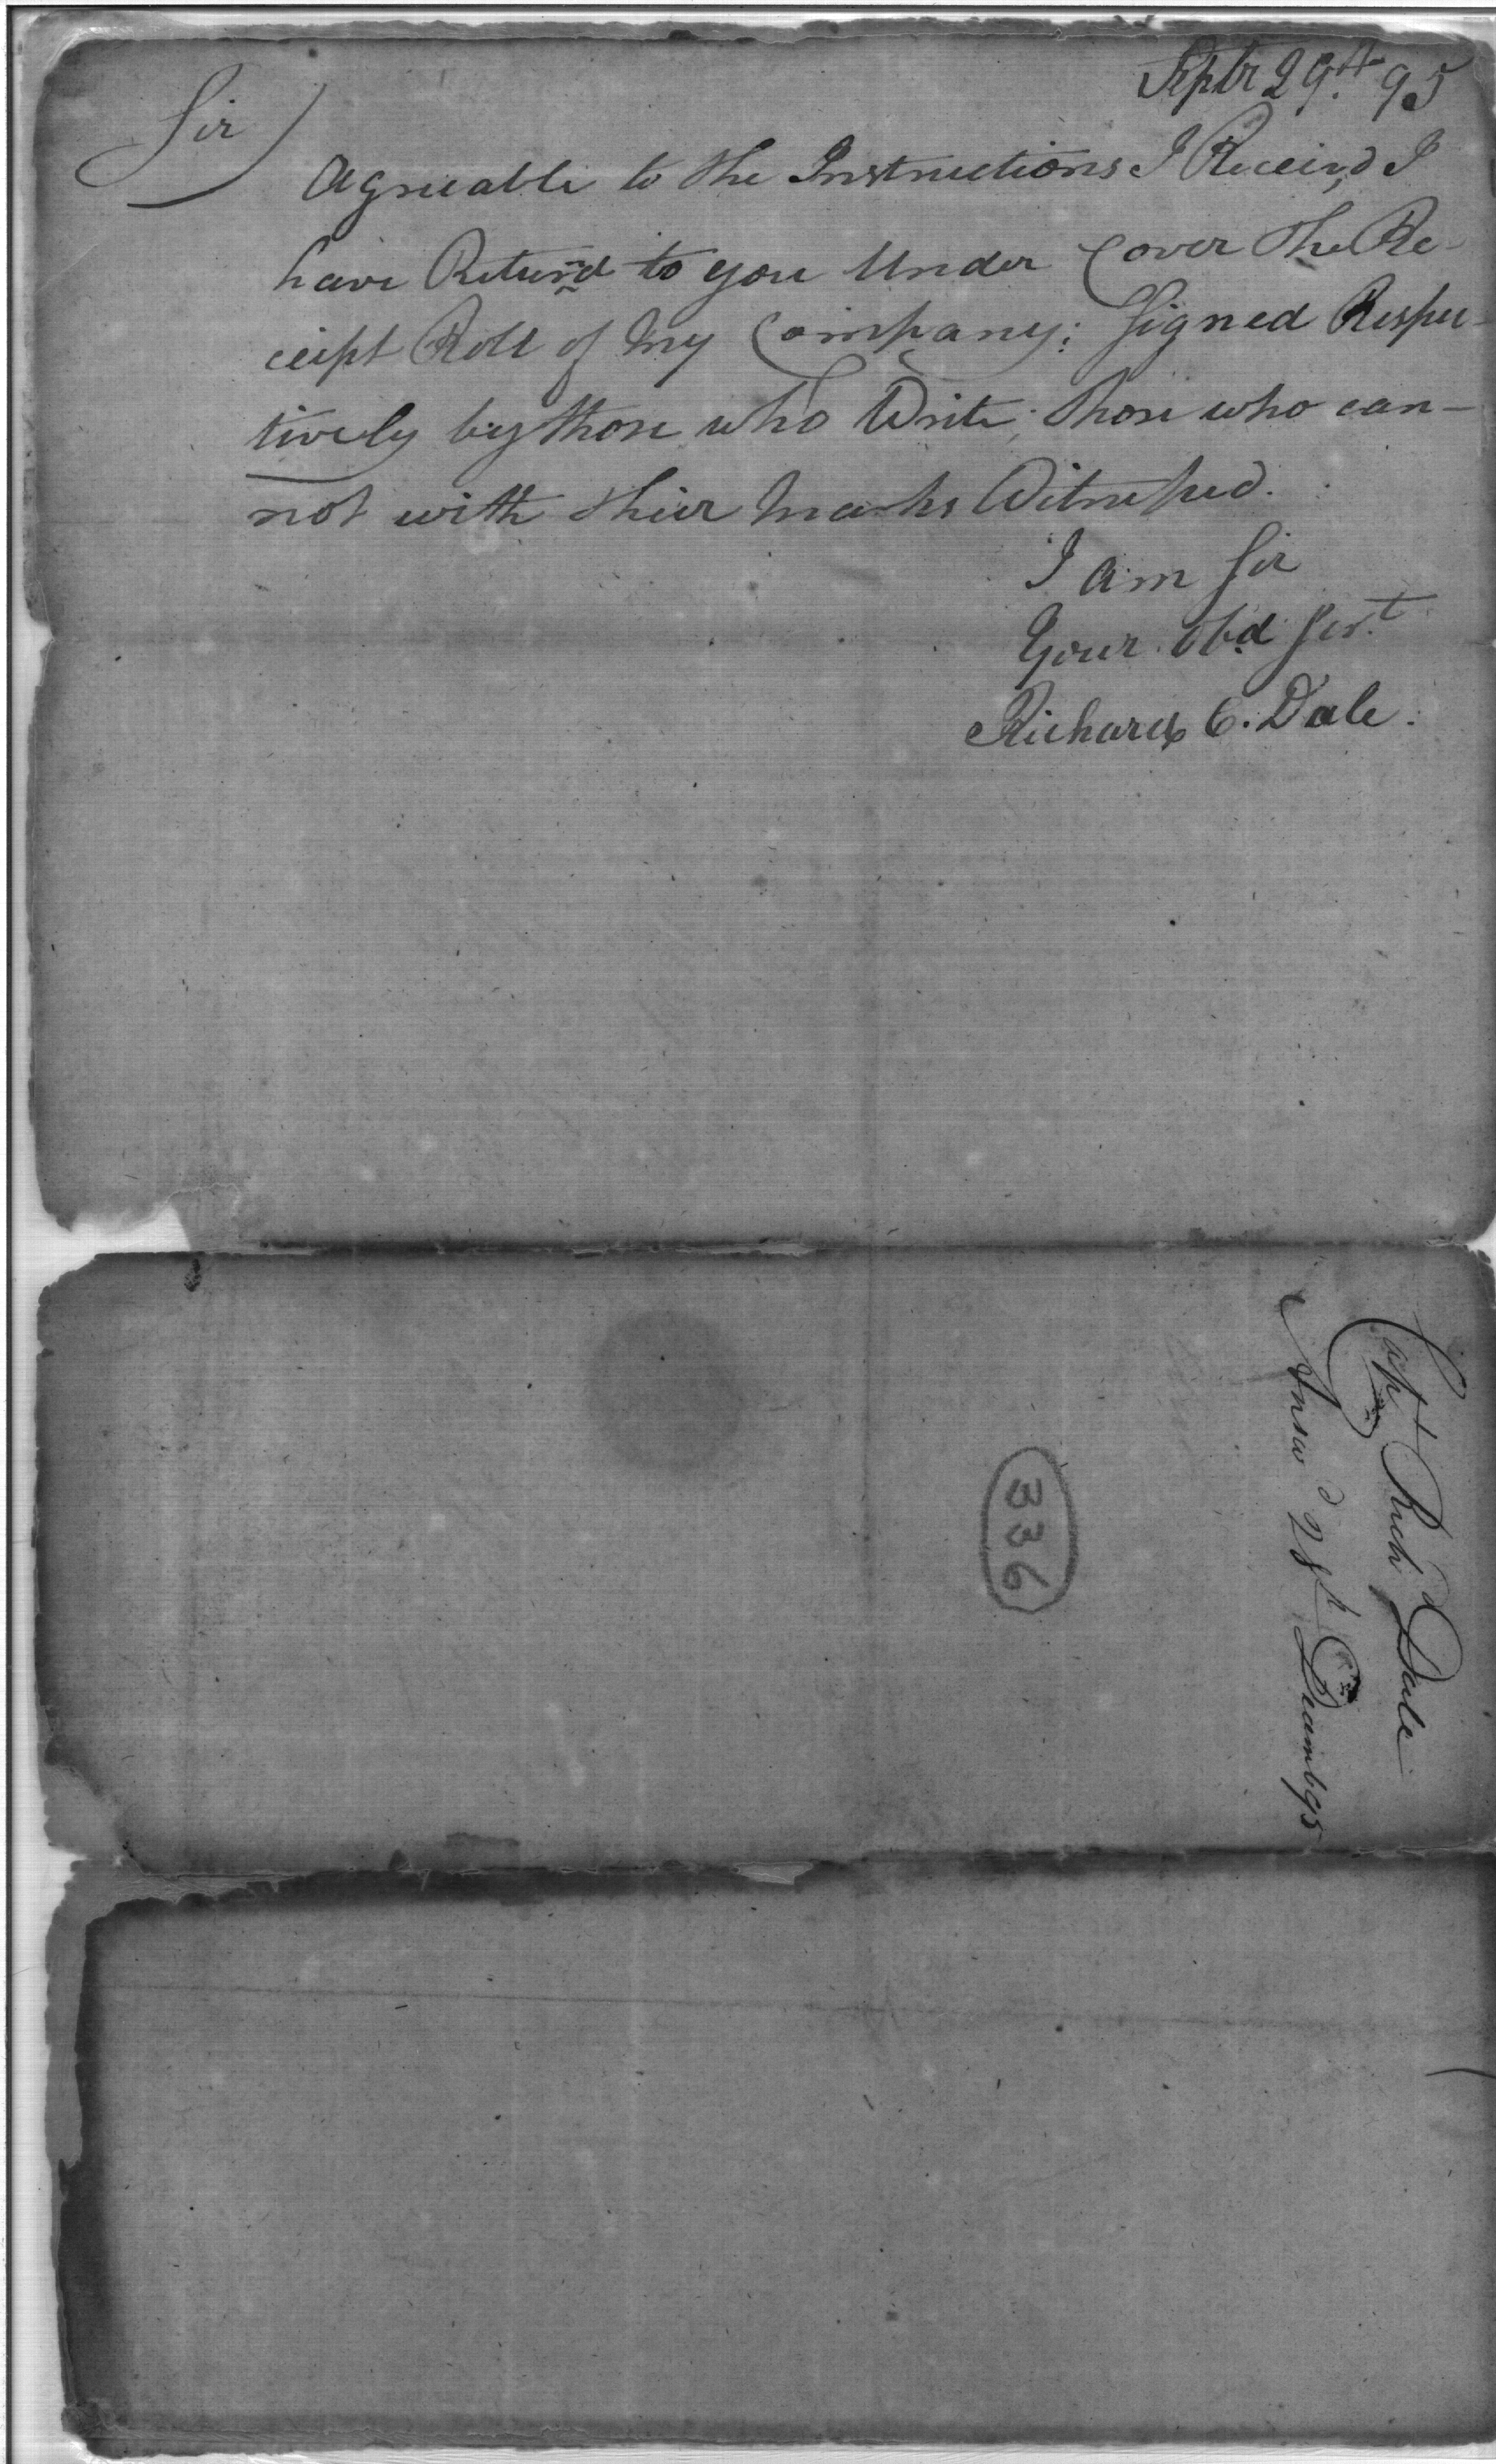 Septr 29th. 95
Sir
Agreeable to the Instructions I Receivd I
have Returnd to you Under Cover The Re-
ceipt Roll of My Company; Signed Respec-
tively by those who Write; those who can-
not with thier Marks Witnessed.
I am Sir
Your Obd Servt
Richard C. Dale.
Capt Richd Dale
Answd 28th Decemb 95
336